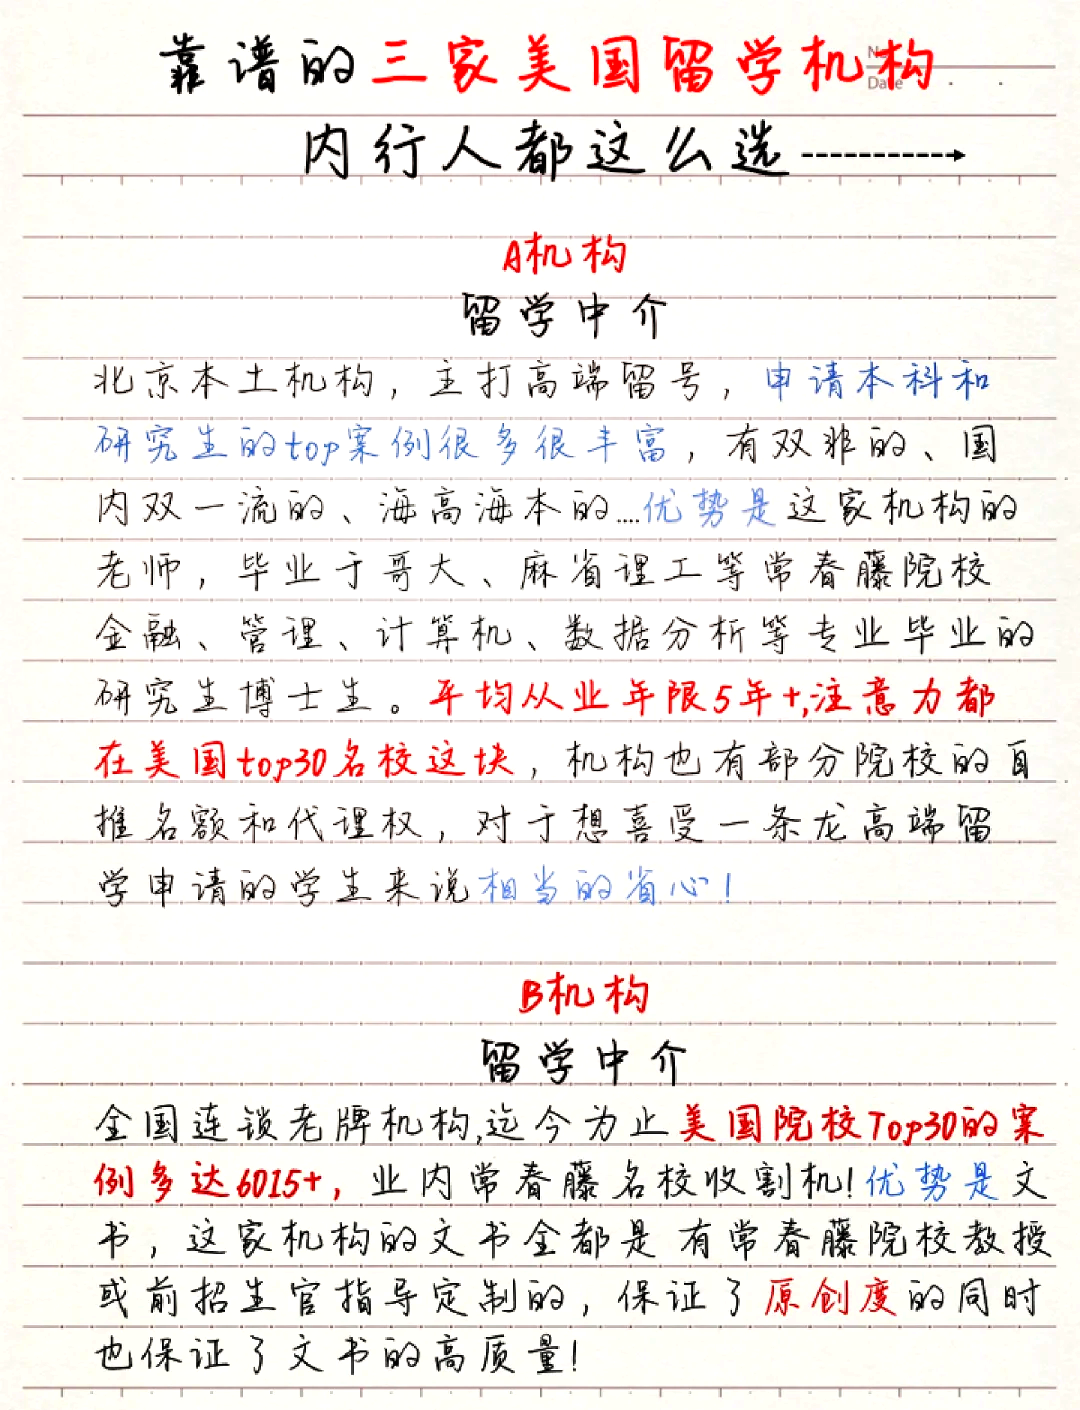 靠谱的三家美国留学机构
No
Date
内行人都这么选
A机构
留学中介
北京本土机构，主打高端留号，申请本科和
研究生的top案例很多很丰富，有双非的、国
内双一流的、海高海本的....优势是这家机构的
老师，毕业于哥大、麻省理工等常春藤院校
金融、管理、计算机、数据分析等专业毕业的
研究生博士生。平均从业年限5年+,注意力都
在美国top30名校这块，机构也有部分院校的自
推名额和代理权，对于想喜受一条龙高端留
学申请的学生来说相当的省心！
B机构
留学中介
全国连锁老牌机构,迄今为止美国院校Top30的案
例多达6015+，业内常春藤名校收割机！优势是文
书，这家机构的文书全都是有常春藤院校教授
或前招生官指导定制的，保证了原创度的同时
也保证了文书的高质量！